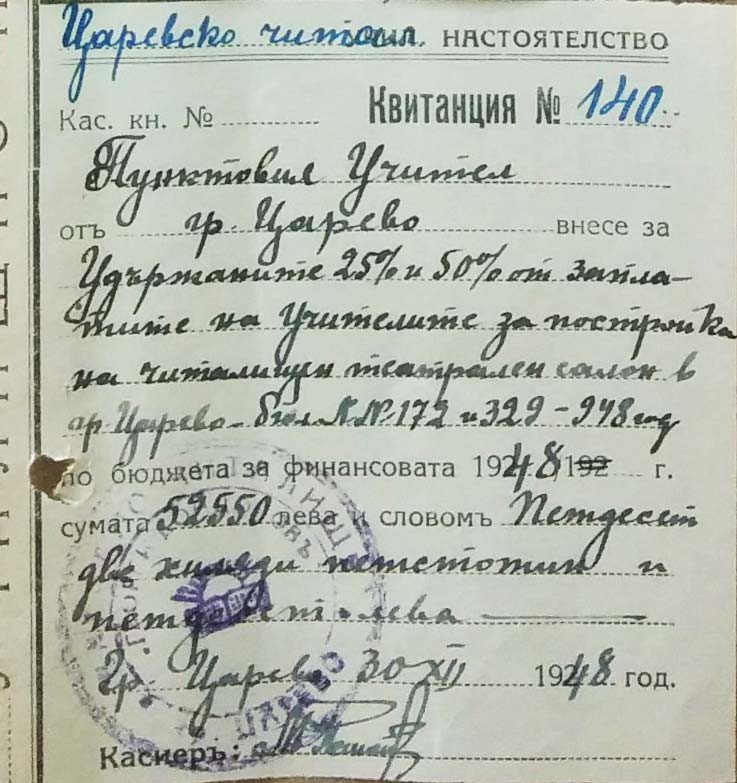 Царевско читал. НАСТОЯТЕЛСТВО
Кас. кн. № Квитанция № 140
Пунктовия Учител
отъ гр. Царево внесе за
Удържаните 25% и 50% от запла-
тите на Учителите за постройка
на читалищен театрален салон в
гр. Царево - бюл. №№ 172 и 329 - 948 год
по бюджета за финансовата 1948/192 г.
сумата 52550 лева и словомъ Петдесет
две хиляди петстотин и
петдесет лева
Гр. Царево 30 XII 1948 год.
Касиеръ:
ЦАРЕВО